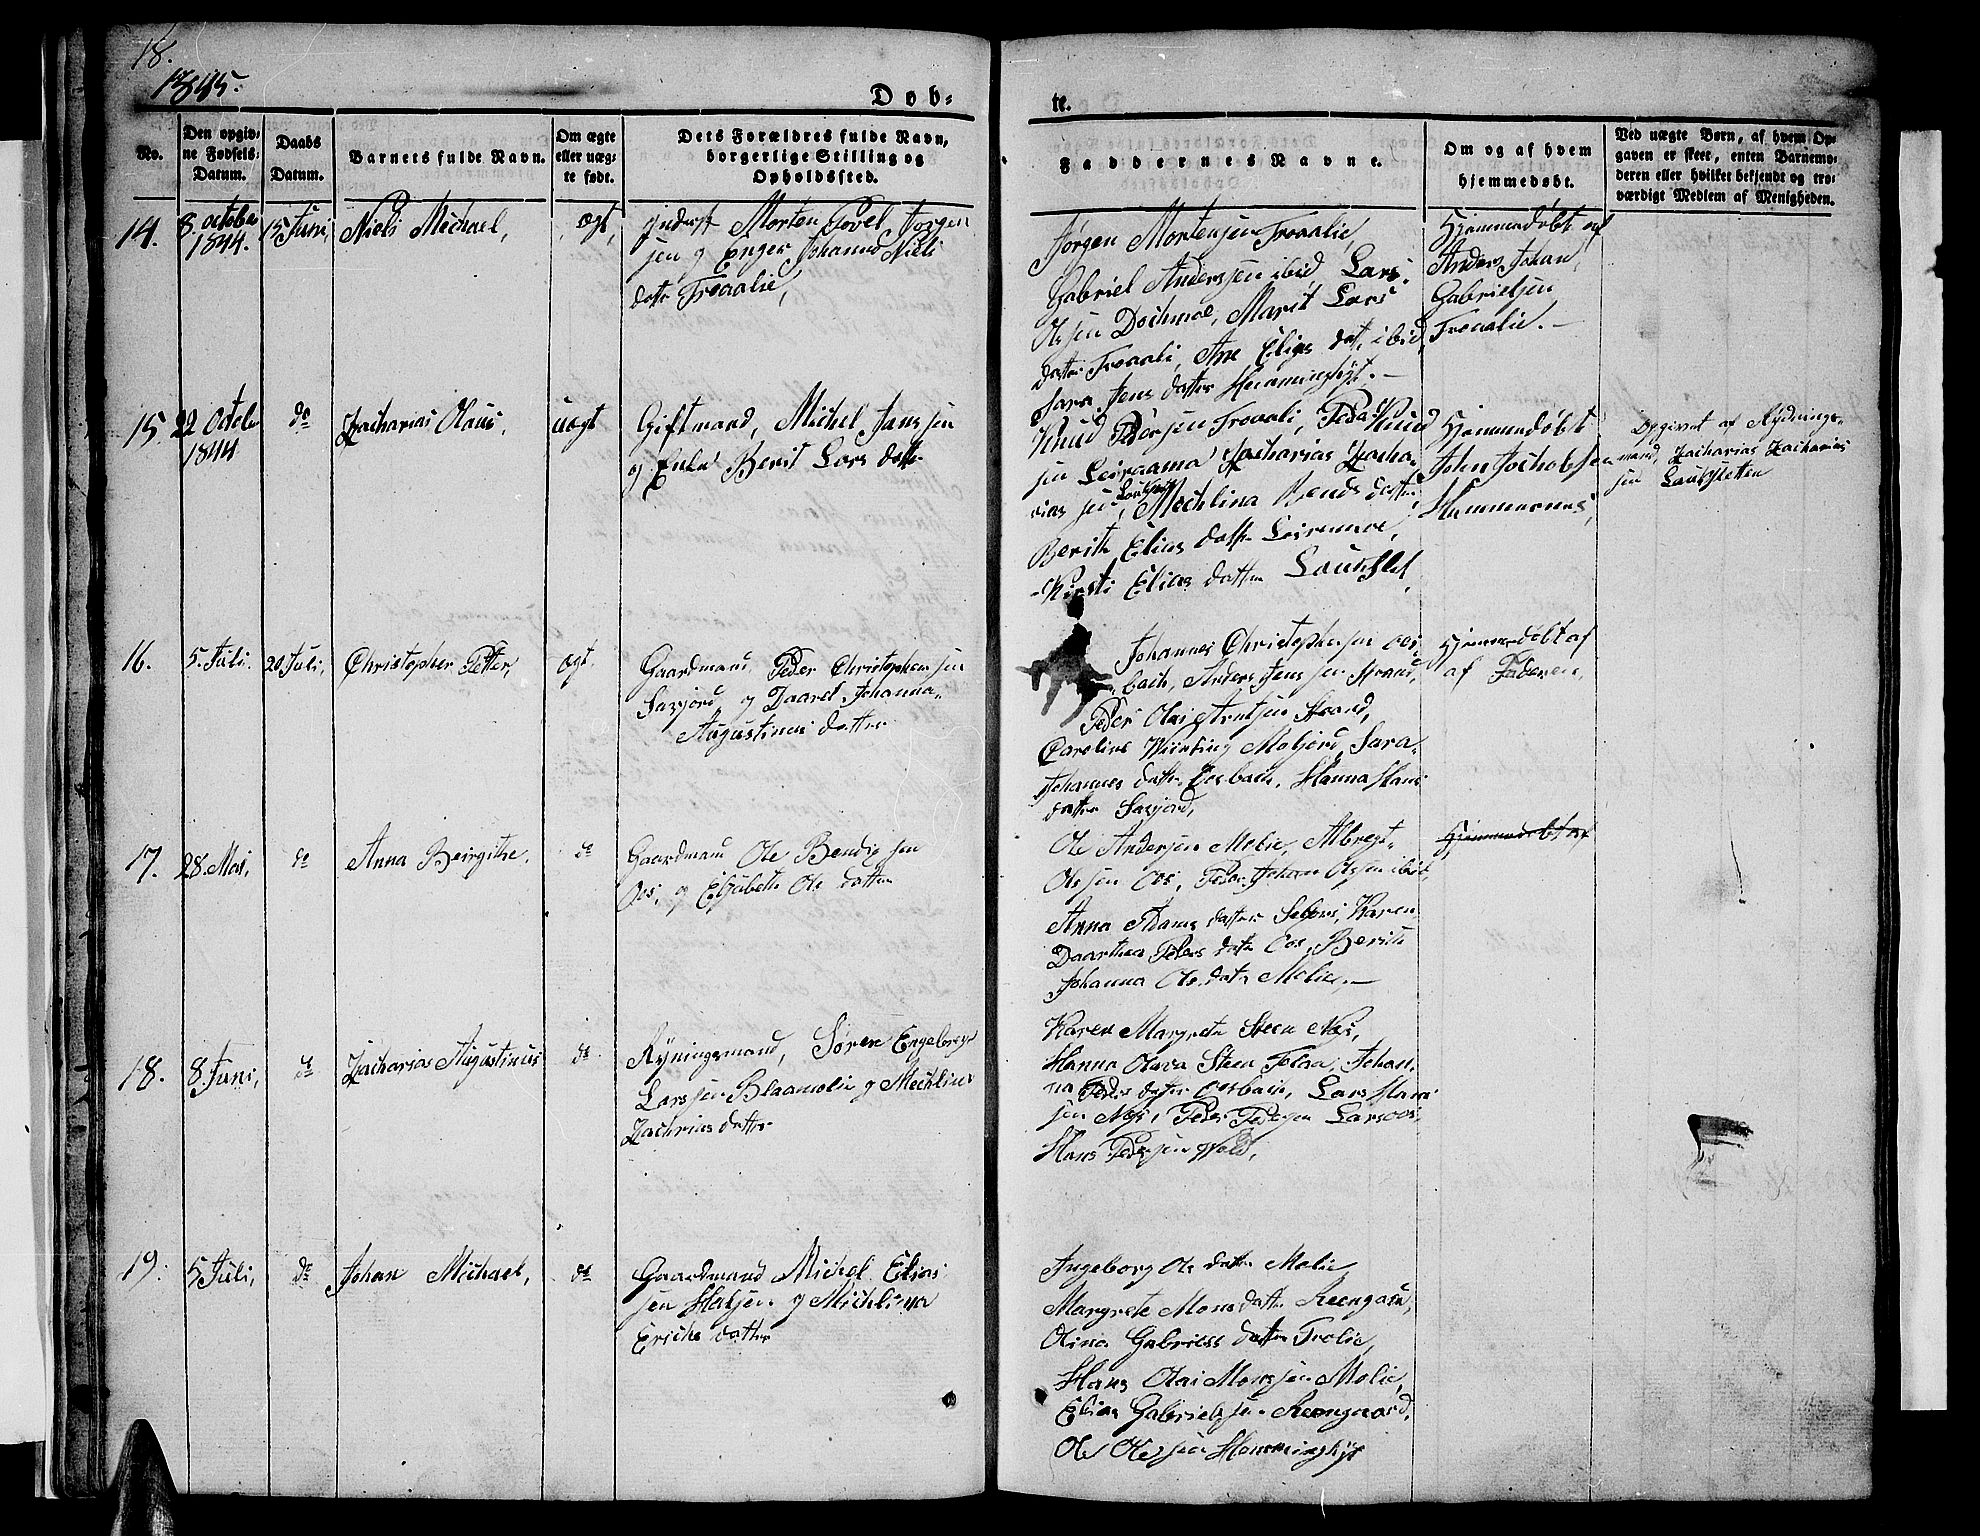 18.
1845.
Døb-
te.
No.
Den opgiv-
ne Fødsels-
Datum.
Daabs
Datum.
Barnets fulde Navn.
Om ægte
eller uæg-
te født.
Dets Forældres fulde Navn,
borgerlige Stilling og
Opholdssted.
Faddernes Navne.
Om og af hvem
hjemmedøbt.
Ved uægte Børn, af hvem Op-
gaven er skeet, enten Barnemo-
deren eller hvilket bekjendt og tro-
værdigt Medlem af Menigheden.
14.
8 octobe
1844.
15 Juni,
Niels Michael,
ægt,
Morten Povel Jørgen
sen og Enger Johanna Niels
datter Troaalie,
Jørgen Mortensen Troaalie,
Gabriel Anderssen ibid, Lars
Olssen Dochmoe, Marit Lars
datter Troaali, Ane Elias dat. ibid,
Sara Jens datter
Hjemmedøbt af
Anders Johan
Gabrielsen
Troaalie.
15
22 Octobe
1844
do
Zacharias Olaus,
uægt
Giftmand, Michel Jansen
og Enke Berit Lars datter
Knud Pedersen Troaali, Peder Knud
sen Leiraama Zacharias Zacha-
rias sen, Mechlina datter
Berith Elias datter Leiremoe,
Kirsti Elias datter
Hjemmedøbt
John Jochobsen
Hammernes,
Opgivet af Rydnings-
mand, Zacharias Zacharias
sen
16.
5. Juli
20 Juli,
Christopher Petter,
ægt.
Gaardmand Peder Christophersen
Saxjord og Daaret Johanna
Augustinus datter
Johannes Christophersen Oes-
bach, Anders Jens sen Strand,
Peder Olai sen Strand,
Carolius Moljord, Sara
Johannes datter Oesbach, Hanna Hans
datter Saxjord,
Hjemmedøbt af
af Faderen,
17.
28. Mai,
do
Anna Beirgithe,
do
Gaardmand Ole Bendix sen
Oes, og Elisabeth Ole datter
Ole Andersen Molie, Albregt
Olssen Oes, Peder Johan Olssen ibid,
Anna Adams datter Selfors, Karen
Daarthea Peders datter Oes, Berith
Johanna Ole datter Molie.
Hjemmedøbt af
18.
8 Juni,
do
Zacharias Augustinus
do
Rydningsmand, Søren Engebregt
Larssen Blaamolie og Mechlina
Zachrias datter
Karen Margrete Steen Næs,
Hanna Olava Steen, Johan
na Peders datter Oesbach, Lars Hans
sen Næs, Peder Pedersen Larsoes,
Hans Pedersen
19.
5 Juli,
do
Johan Michael,
do
Gaardmand Michel Elias
sen og Michlina
Erichs datter
Ingeborg Ole datter Molie
Margrete Mons datter Reengaard,
Olina Gabriels datter Trolie,
Hans Olai Monssen Molie,
Elias Gabrielssen Reengaard,
Ole Olessen